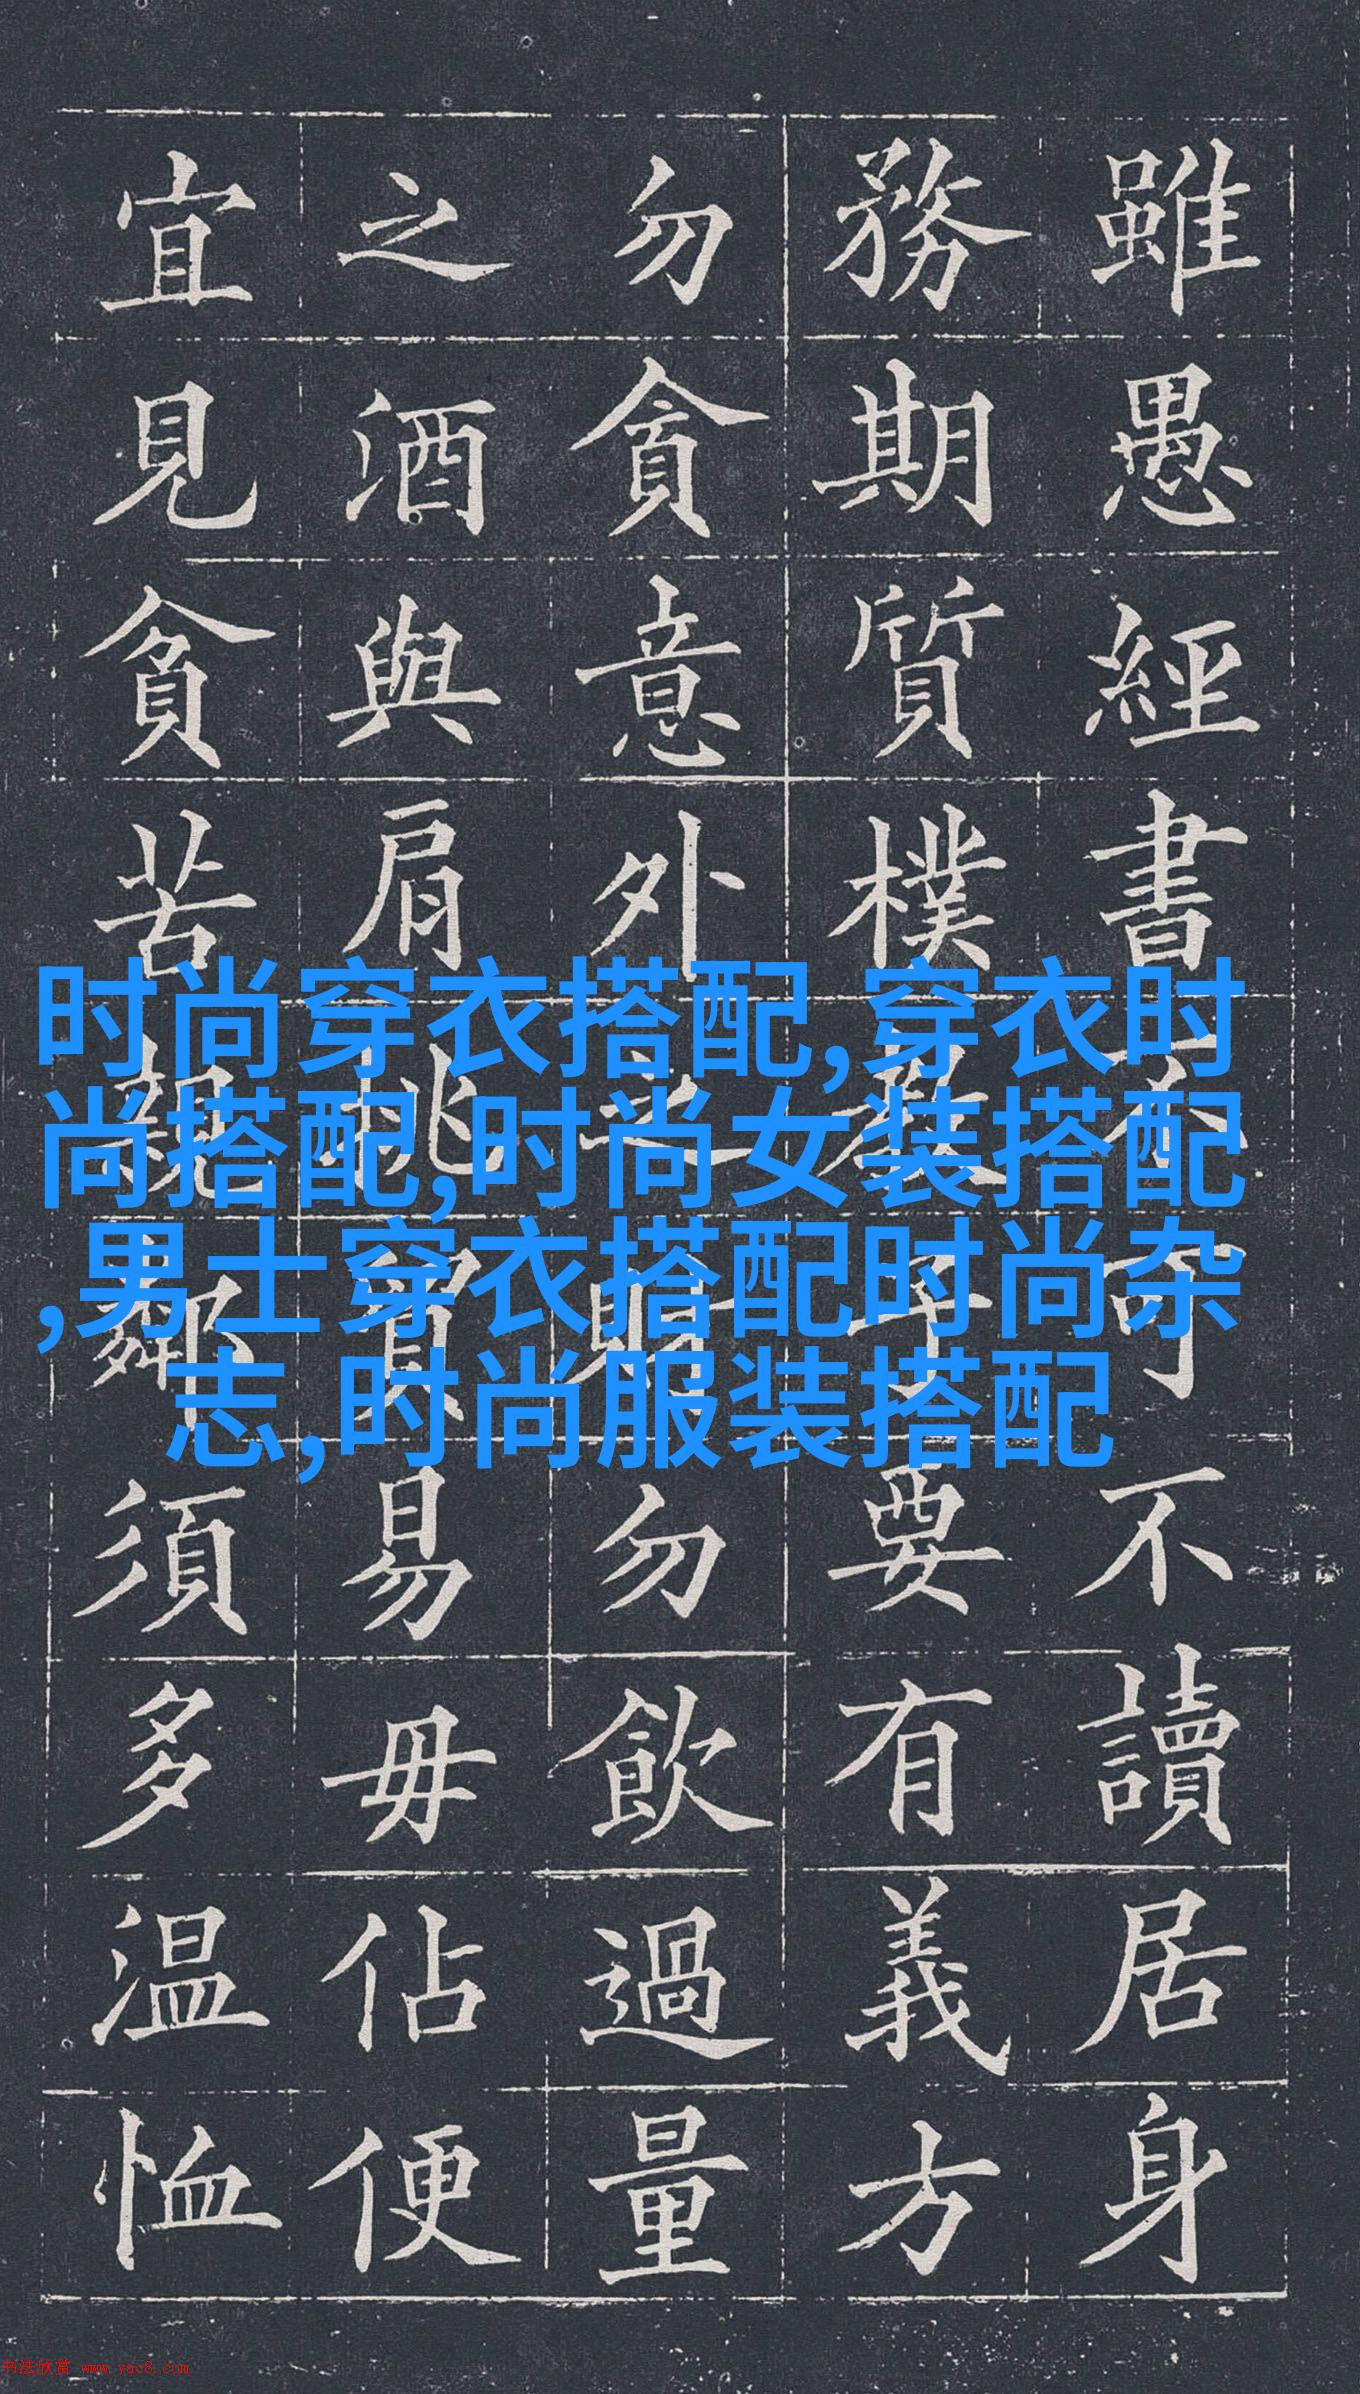 雖愚經書不可不讀居身
務期質樸教子要有義方
勿貪意外之財勿飲過量
之酒與肩挑貿易毋佔便
宜見貧苦親鄰須多温恤
时尚穿衣搭配,穿衣时
尚搭配,时尚女装搭配
,男士穿衣搭配时尚杂
志,时尚服装搭配
书法欣赏 www.yac8.com